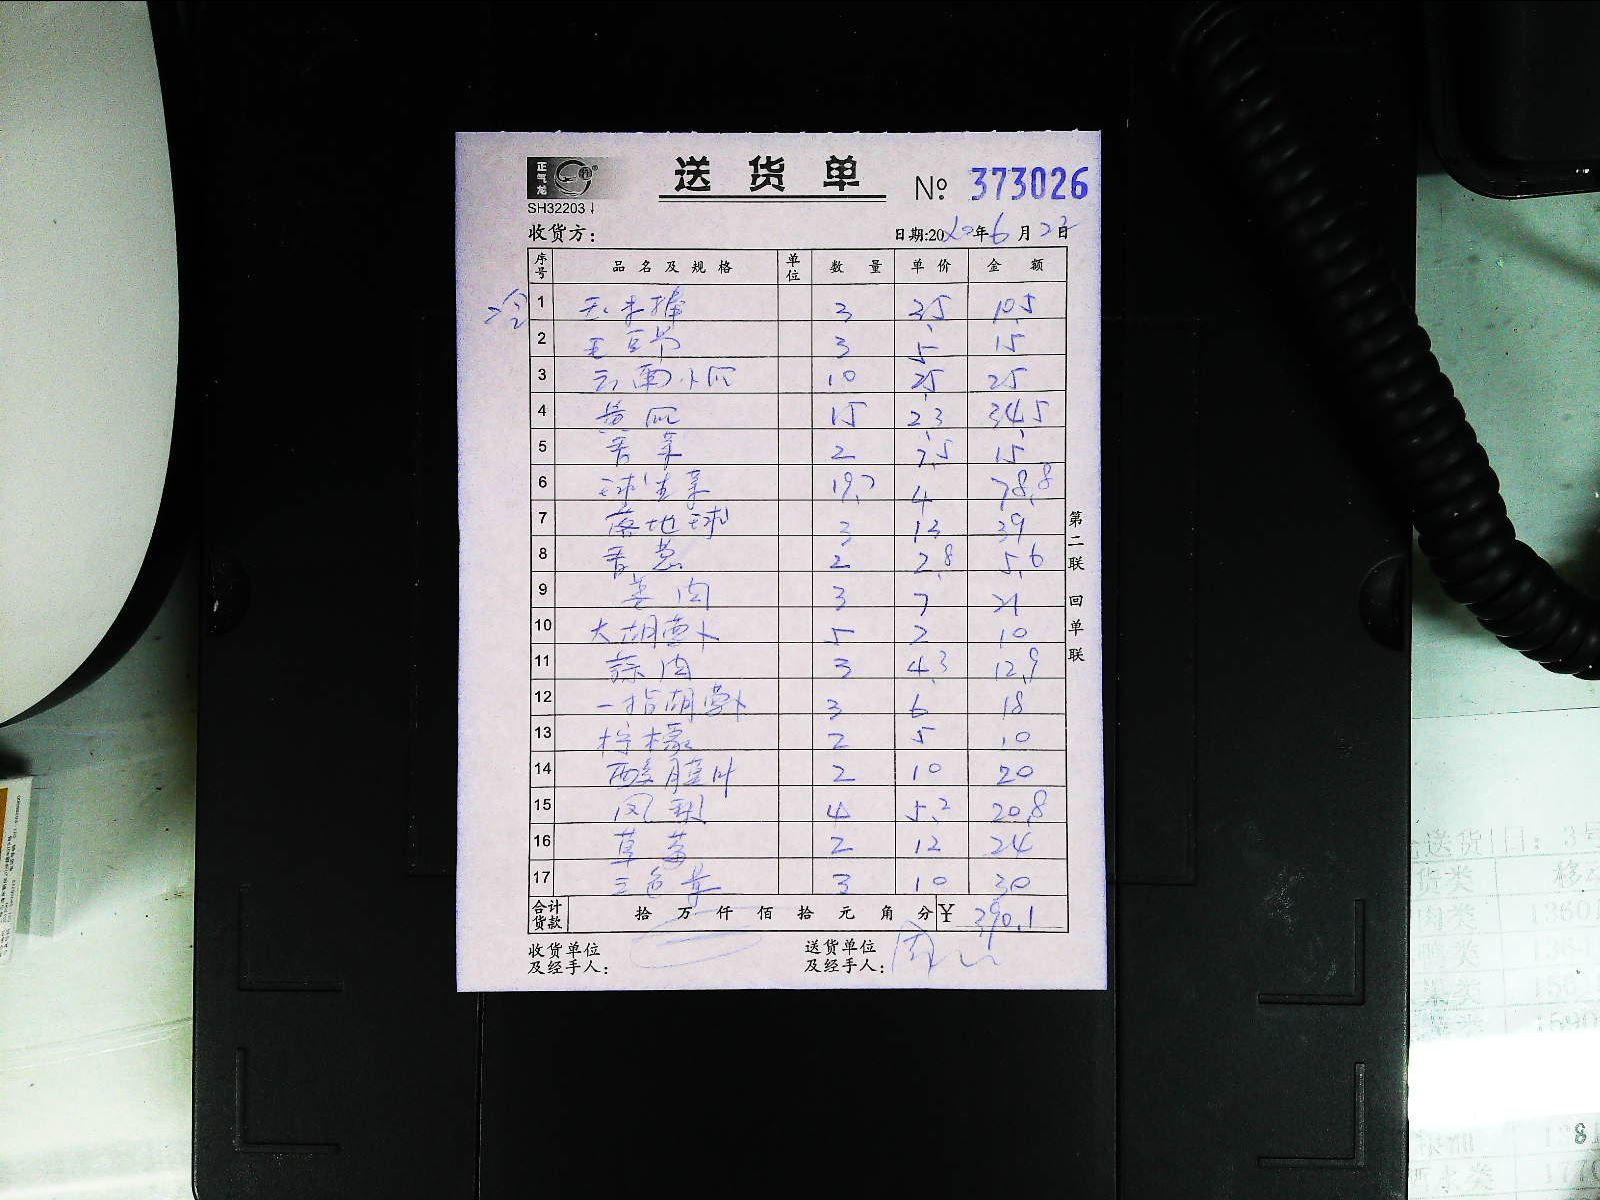 正气龙
送货单 № 373026
SH32203
收货方： 日期:2020年6月23日
序号 品名及规格 单位 数量 单价 金额
冷
1 玉米棒 3 3.5 10.5
2 毛豆节 3 5 15
3 云南小瓜 10 2.5 25
4 黄瓜 15 2.3 34.5
5 香菜 2 7.5 15
6 球生菜 19.7 4 78.8
7 落地球 3 13 39
8 香葱 2 2.8 5.6
9 姜肉 3 7 21
10 大胡萝卜 5 2 10
11 蒜肉 3 4.3 12.9
12 一指胡萝卜 3 6 18
13 柠檬 2 5 10
14 酸 2 10 20
15 凤梨 4 5.2 20.8
16 草莓 2 12 24
17 三色 3 10 30
合计货款 拾万仟佰拾元角分 ¥ 390.1
收货单位及经手人： 送货单位及经手人： 周
第二联 回单联
送货日：3号
货类 移动